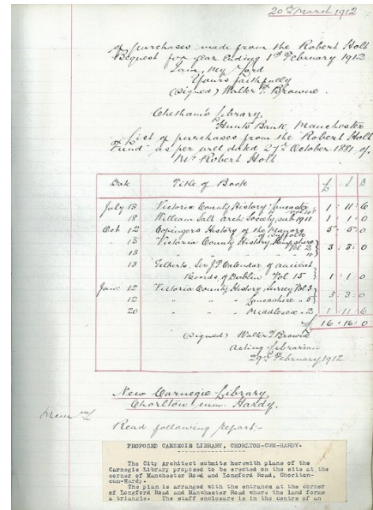 20th March 1912
of purchases made from the Robert Holt
Bequest for year ending 1st February 1912
I am, My Lord
Yours faithfully
(signed) Walter T. Browne.
Chetham's Library,
Hunts Bank, Manchester
List of purchases from the Robert Holt
Fund as per will dated 27th October 1881 of
Mr Robert Holt
Date Title of Book £ s D
July 13 Victoria County History Lancaster 1 . 11 . 6
18 William Salt Arch: Society 1911 1 . 1 . 0
Oct 12 Copingers History of the Manors of Suffolk 5 . 5 . 0
13 Victoria County History Hampshire
13 " " " 3 . 3 . 0
13 Gilberts, Sir J T Calendar of ancient
Records of Dublin Vol 15 1 . 1 . 0
Jany 12 Victoria County History Surrey Vol 3
12 " " " Lancashire " 5 3 . 3 . 0
20 " " " Middlesex " 2 1 . 11 . 6
£ 16 . 16 . 0
(signed) Walter T Browne
Acting Librarian
29th February 1912
New Carnegie Library
Chorlton cum Hardy.
Read following report:-
PROPOSED CARNEGIE LIBRARY, CHORLTON-CUM-HARDY.
The City Architect submits herewith plans of the
Carnegie Library proposed to be erected on the site at the
corner of Manchester Road and Longford Road, Chorlton-
cum-Hardy.
The plan is arranged with the entrances at the corner
of Longford Road and Manchester Road where the land forms
a triangle. The staff enclosure is in the centre of an